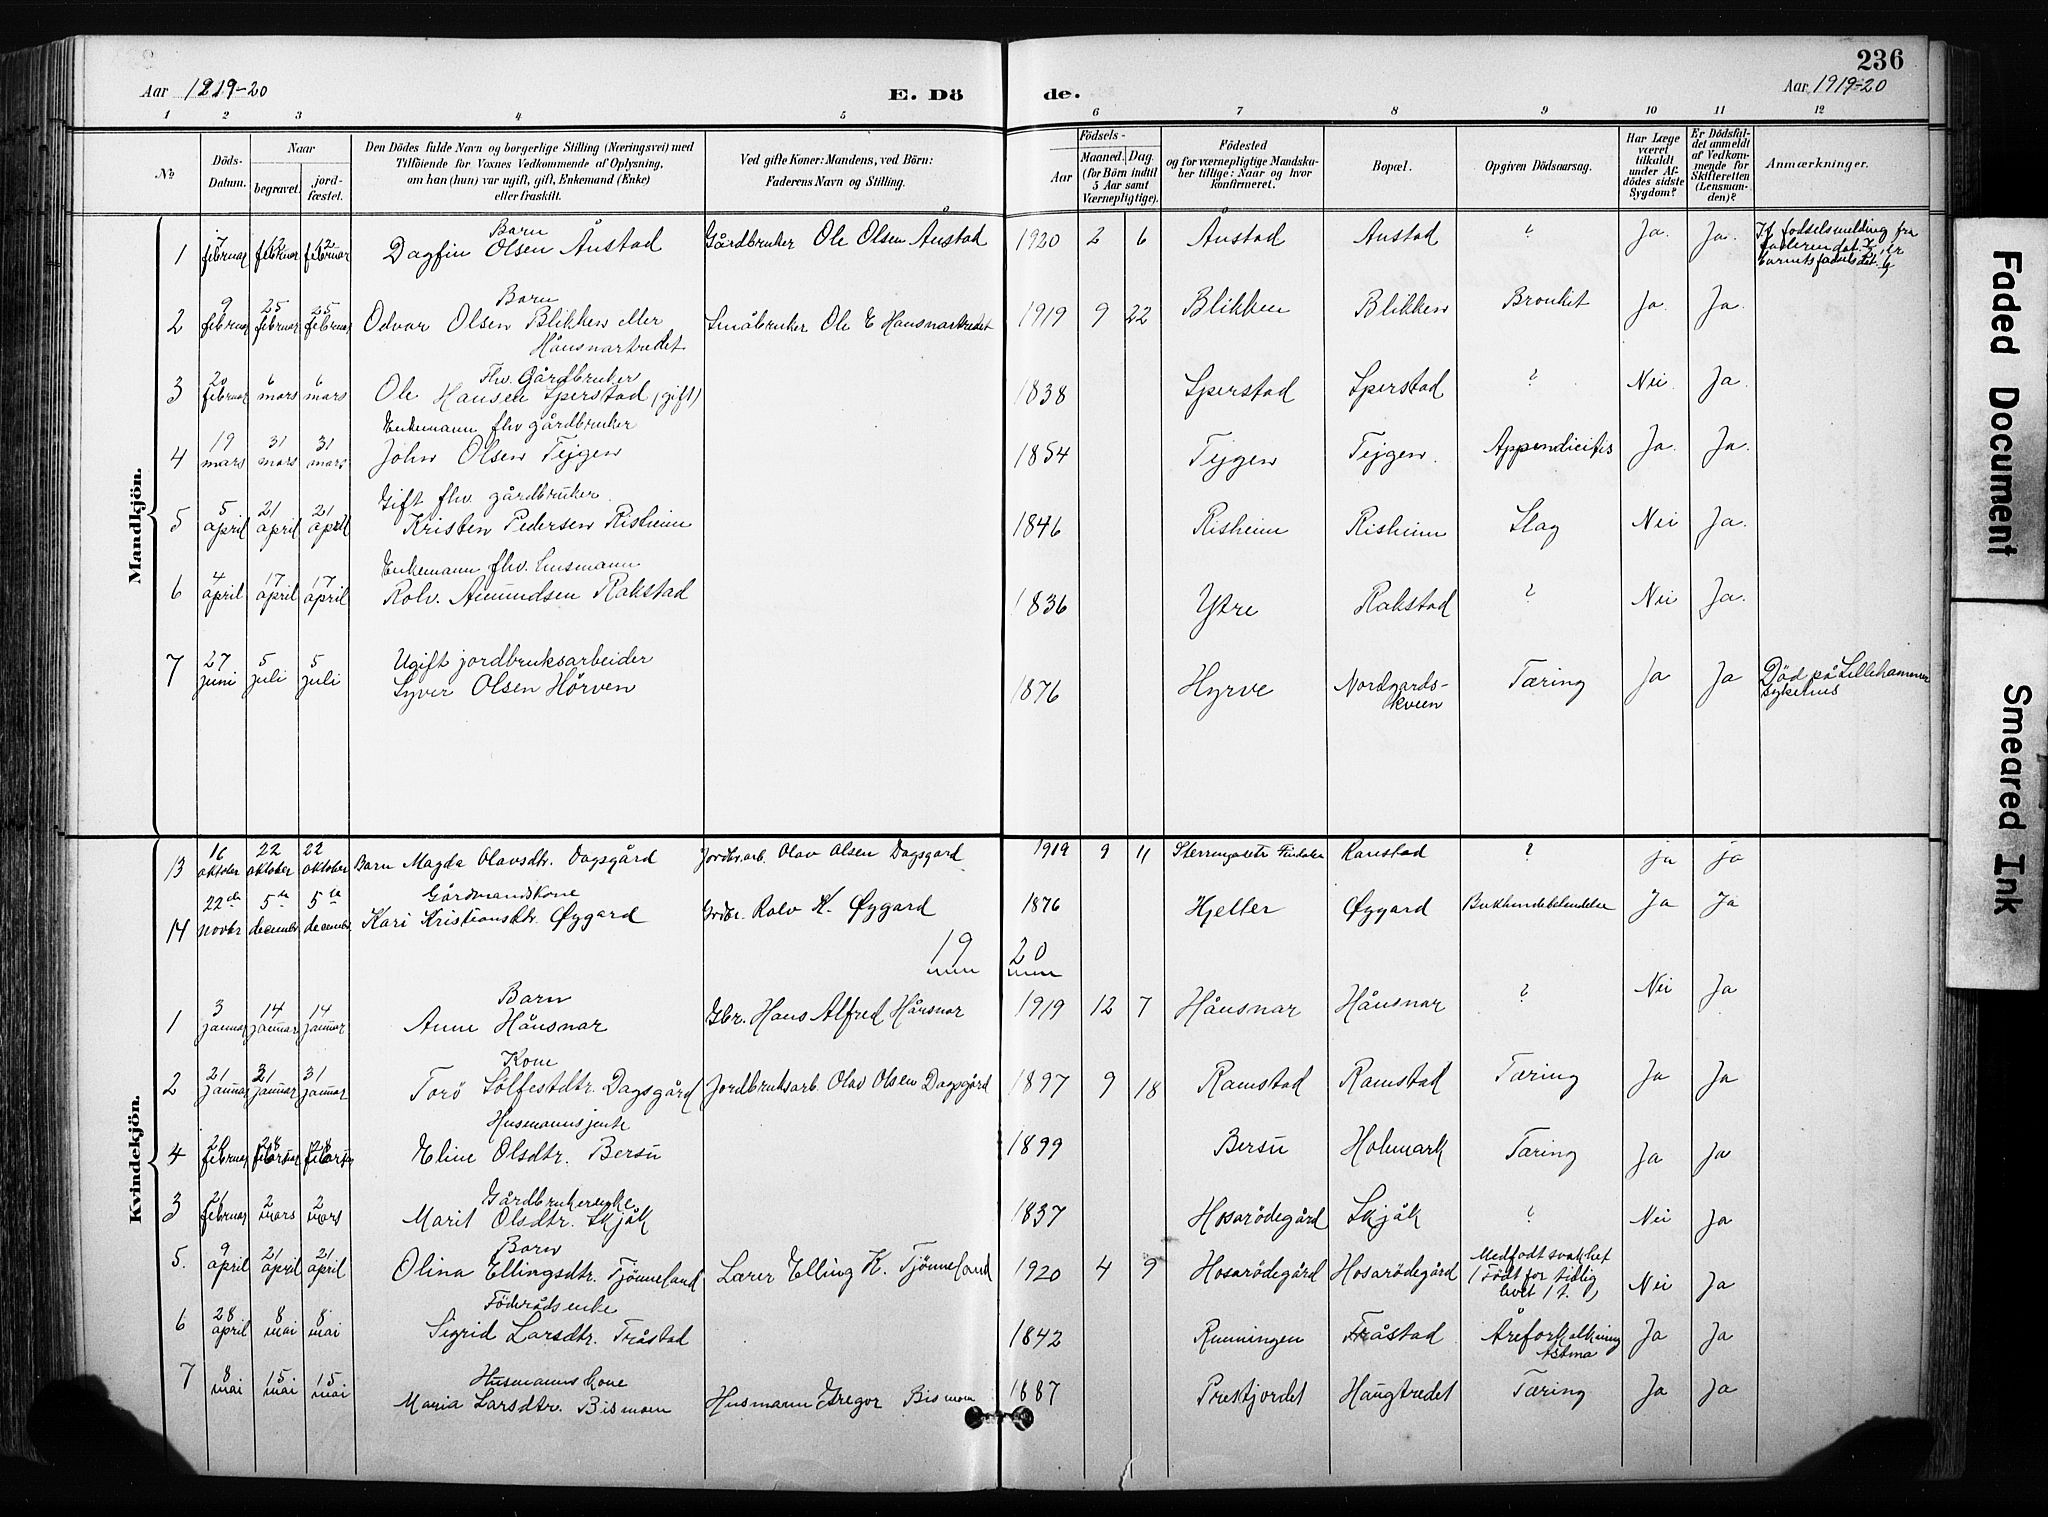 236
Aar 1919-20 E. Dö de. Aar 1919-20
1 2 3 4 5 6 7 8 9 10 11 12
No Döds-Datum. Naar begravet. jord-fæstet. Den Dödes fulde Navn og borgerlige Stilling (Næringsvei) med Tilföiende for Voxnes Vedkommende af Oplysning, om han (hun) var ugift, gift, Enkemand (Enke) eller fraskilt. Ved gifte Koner: Mandens, ved Börn: Faderens Navn og Stilling. Födsels- Aar Maaned. Dag. (for Börn indtil 5 Aar samt Værnepligtige). Födested og for værnepligtige Mandska-ber tillige: Naar og hvor konfirmeret. Bopæl. Opgiven Dödsaarsag. Har Læge været tilkaldt under Af-dödes sidste Sygdom? Er Dödsfal-det anmeldt af Vedkom-mende for Skifteretten (Lensman-den)? Anmærkninger.
Mandkjön.
1 7 februar 12 februar 12 februar Barn Dagfin Olsen Åustad Gårdbruker Ole Olsen Åustad 1920 2 6 Åustad Austad ? Ja. Ja. fodselsmelding fra
2 9 februar 25 februar 25 februar Barn Odvar Olsen Blikken eller Hånsnartrædet Småbruker Ole E Hånsnartrædet 1919 9 22 Blikken Blikken Bronkit Ja. Ja.
3 20 februar 6 mars 6 mars Fhv. Gårdbruker Ole Hansen Sperstad (gift) 1838 Sperstad Sperstad ? Nei Ja.
4 19 mars 31 mars 31 mars Enkemann fhv gårdbruker John Olsen Tejgen 1854 Tejgen Tejgen. Appendicites Ja. Ja.
5 5 april 21 april 21 april Gift fhv. gårdbruker. Kristen Pedersen Risheim 1846 Risheim Risheim Slag Nei Ja.
6 4 april 17 april 17 april Enkemann fhv. Lensmann Rolv. Amundsen Rakstad 1836 Ytre Rakstad ? Nei Ja.
7 27 juni 5 juli 5 juli Ugift jordbruksarbeider Syver Olsen Hörven 1876 Hyrve Nordgards-kveen Tæring Ja Ja Död på Lillehammer sykehus
Kvindekjön.
13 16 oktober 22 oktober 22 oktober Barn Magda Olavsdtr. Dagsgård Jordbr.arb. Olav Olsen Dagsgard 1919 9 11 Ramstad ? ja ja
14 22de novbr 5te decembr 5te decembr Gårdmandskone Kari Kristiansdtr. Øygard Grdbr. Rolv K. Øygard 1876 Hjelter Øygard Bukhindebetendelse Ja Ja
19 20
1 3 januar 14 januar 14 januar Barn Anne Hånsnar Gbr. Hans Alfred Hånsnar 1919 12 7 Hånsnar Hånsnar ? Nei Ja
2 21 januar 31 januar 31 januar Kone Torö Solfestdtr. Dagsgård Jordbruksarb. Olav Olsen Dagsgård 1897 9 18 Ramstad Ramstad Tæring Ja Ja
4 20 februar 28 februar 28 februar Husmannsjente Eline Olsdtr. Bersu 1899 Bersu Holmark Tæring Ja Ja
3 21 februar 2 mars 2 mars Gårdbrukerenke Marit Olsdtr. Skjåk 1837 Hosarödegård Skjåk ? Nei Ja
5. 9 april 21 april 21 april Barn Olina Ellingsdtr. Tjönneland Lærer Elling K. Tjönneland 1920 4 9 Hosarödegård Hosarödegård Medfödt svakhet (Födt for tidlig Nei Ja
6 28 april 8 mai 8 mai Föderådsenke Sigrid Larsdtr. Fråstad 1842 Runningen Fråstad Åreforkalkning Astma Ja Ja
7 8 mai 15 mai 15 mai Husmannskone Maria Larsdtr. Bismoen Husmann Gregor Bismoen 1887 Prestjordet Haugtrædet Tæring Ja Ja
Faded Document
Smeared Ink